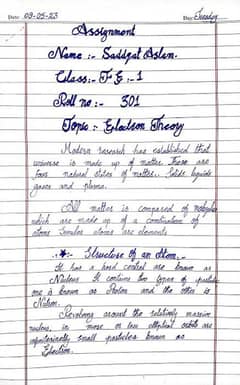 Date: 09-05-23 Day: Tuesday
Assignment
Name :- Saddqat Aslam.
Class:- F E :- 1
Roll no :- 301
Topic :- Electson Theory
Modern research has established that
universe is made up of matter. There are
four natural states of matter. Solids liquids
gases and plasma.
All matter is compased of molecules
which are made up of a combination of
atoms
atoms are elements
Structure of an Atom.
It has a
central are known as
Nucleus It contains two types of particle
one is known as Proton and the other is
Nutron.
Revolving around the relatively massive
nucleus, in more or less elliptical orbits are
infinitesimally small particles known as
Electron.